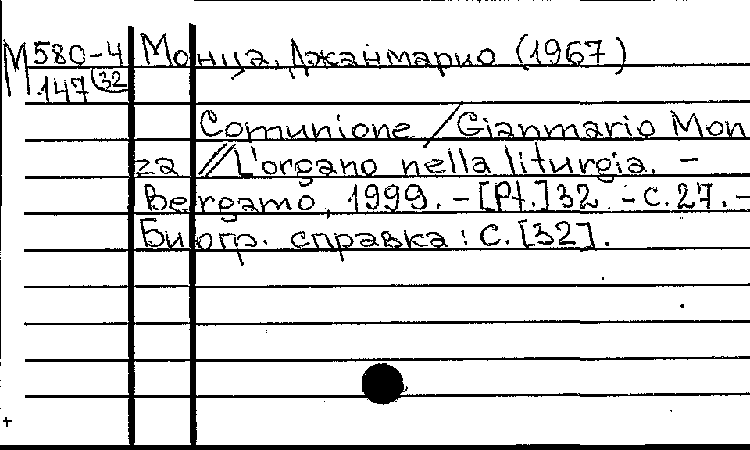 М 580-4 Монца, Джанмарио (1967)
147 (32
Comunione / Gianmario Mon
za // L'organo nella liturgia. -
Bergamo, 1999. - [Pt.] 32. - С. 27. -
Биогр. справка: С. [32].